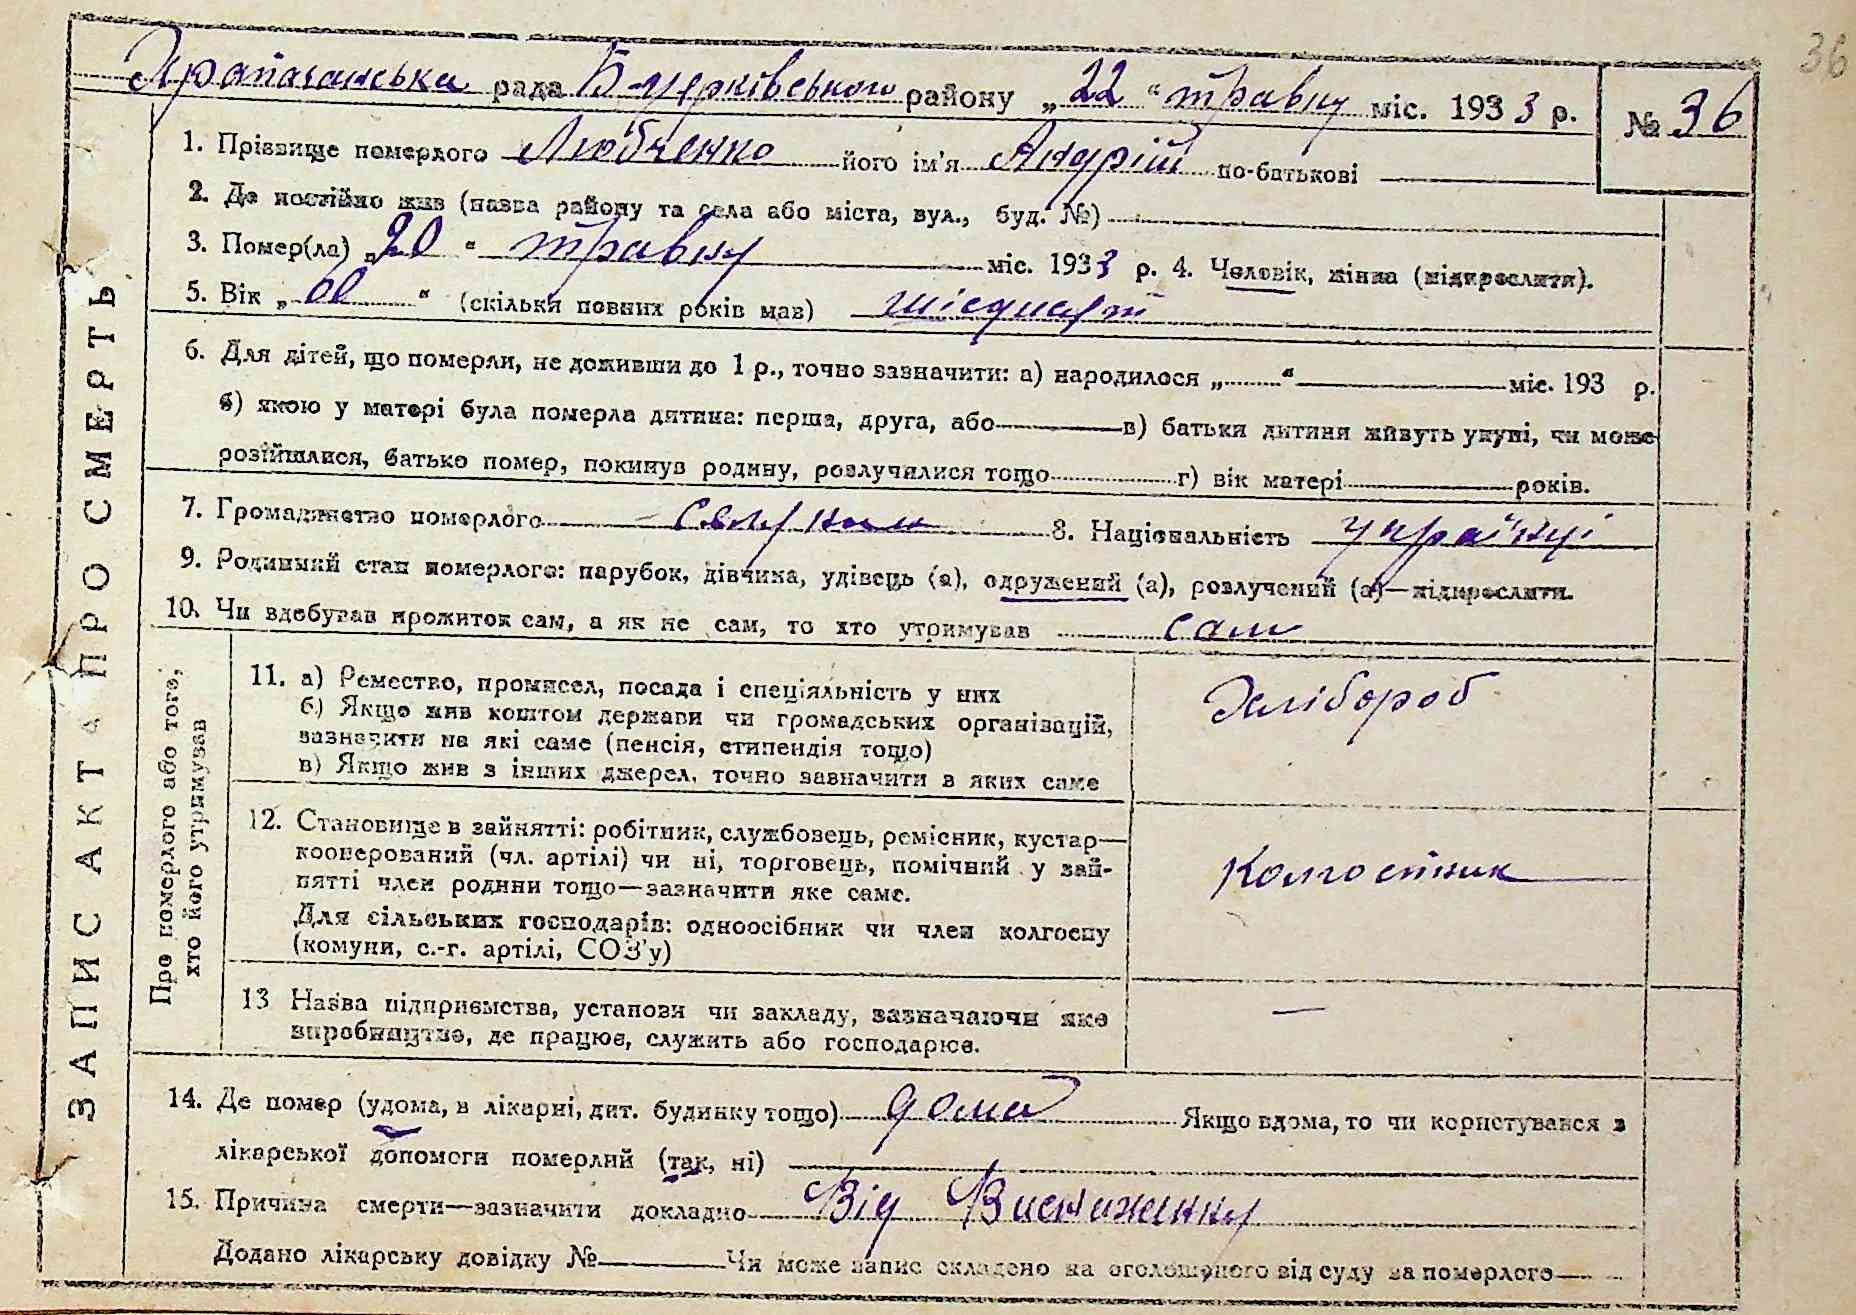 36
Храпачанська рада Б-церківського району „22“ травня міс. 1933 р. № 36
1. Прізвище померлого Любченко його ім'я Андрій по-батькові
2. Де постійно жив (назва району та села або міста, вул., буд. №)
3. Помер(ла) „20“ травня міс. 1933 р. 4. Человік, жінка (підкреслити).
5. Вік „60“ (скільки повних років мав) шісдисят
6. Для дітей, що померли, не доживши до 1 р., точно зазначити: а) народилося „ “ міс. 193 р.
б) якою у матері була померла дитина: перша, друга, або в) батьки дитини живуть укупі, чи може
розійшлися, батько помер, покинув родину, розлучилися тощо г) вік матері років.
7. Громадянство померлого 8. Національність українці
9. Родинний стан померлого: парубок, дівчина, удівець (а), одружений (а), розлучений (а)—підкреслити.
10. Чи здобував прожиток сам, а як не сам, то хто утримував сам
ЗАПИС АКТА ПРО СМЕРТЬ
Про померлого або того,
хто його утримував
11. а) Ремество, промисел, посада і спеціяльність у них Хлібороб
б) Якщо жив коштом держави чи громадських організацій,
зазначити на які саме (пенсія, стипендія тощо)
в) Якщо жив з інших джерел, точно зазначити в яких саме
12. Становище в зайнятті: робітник, службовець, ремісник, кустар—
кооперований (чл. артілі) чи ні, торговець, помічний у зай-
нятті член родини тощо—зазначити яке саме. Колгоспник
Для сільських господарів: одноосібник чи член колгоспу
(комуни, с.-г. артілі, СОЗ'у)
13 Назва підприємства, установи чи закладу, зазначаючи яке —
виробництво, де працює, служить або господарює.
14. Де помер (удома, в лікарні, дит. будинку тощо) дома Якщо вдома, то чи користувався з
лікарської допомоги померлий (так, ні)
15. Причина смерти—зазначити докладно Від Виснаження
Додано лікарську довідку № Чи може запис складено на оголошеного від суду за померлого